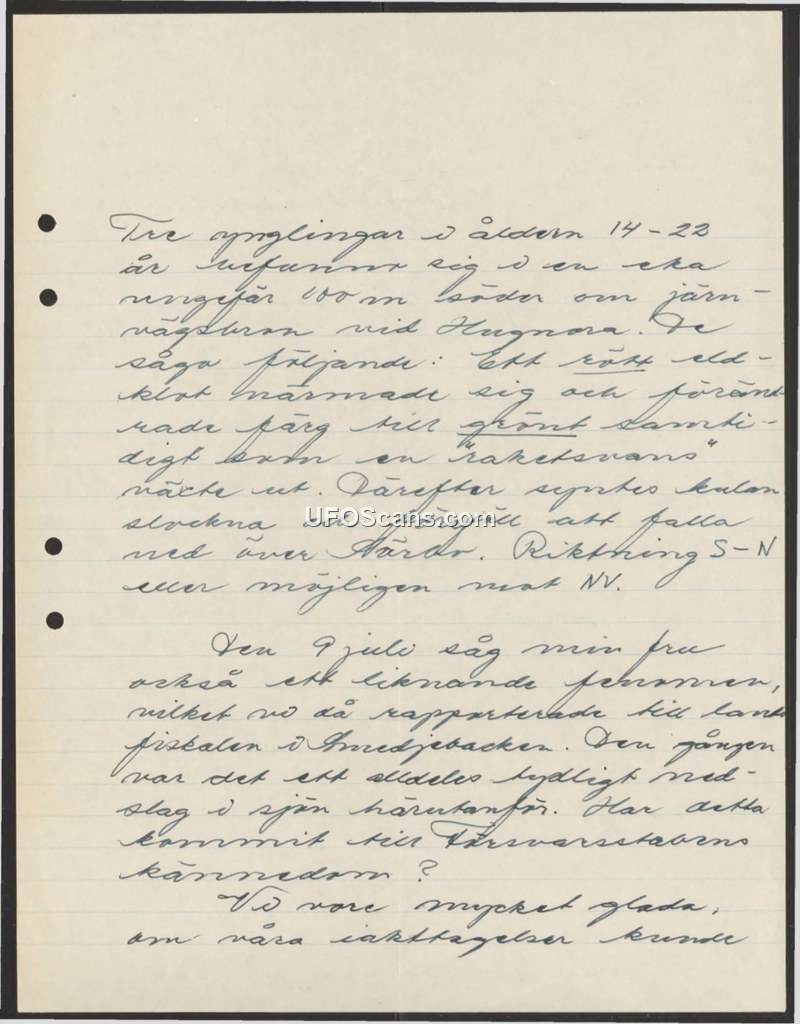 Tre ynglingar i åldern 14-22
år befunno sig i en eka
ungefär 100 m söder om järn-
vägsbron vid Hugnora. De
sågo följande: Ett rött eld-
klot närmade sig och föränd-
rade färg till grönt samti-
digt som en "raketsvans"
växte ut. Därefter syntes kulan
slockna och att falla
ned över Närbo. Riktning S-N
eller möjligen mot NV.
Den 9 juli såg min fru
också ett liknande fenomen,
vilket vi då rapporterade till lands
fiskalen i Smedjebacken. Den gången
var det ett alldeles tydligt ned-
slag i sjön härutanför. Har detta
kommit till Försvarsstabens
kännedom?
Vi vore mycket glada,
om våra iakttagelser kunde
UFOScans.com